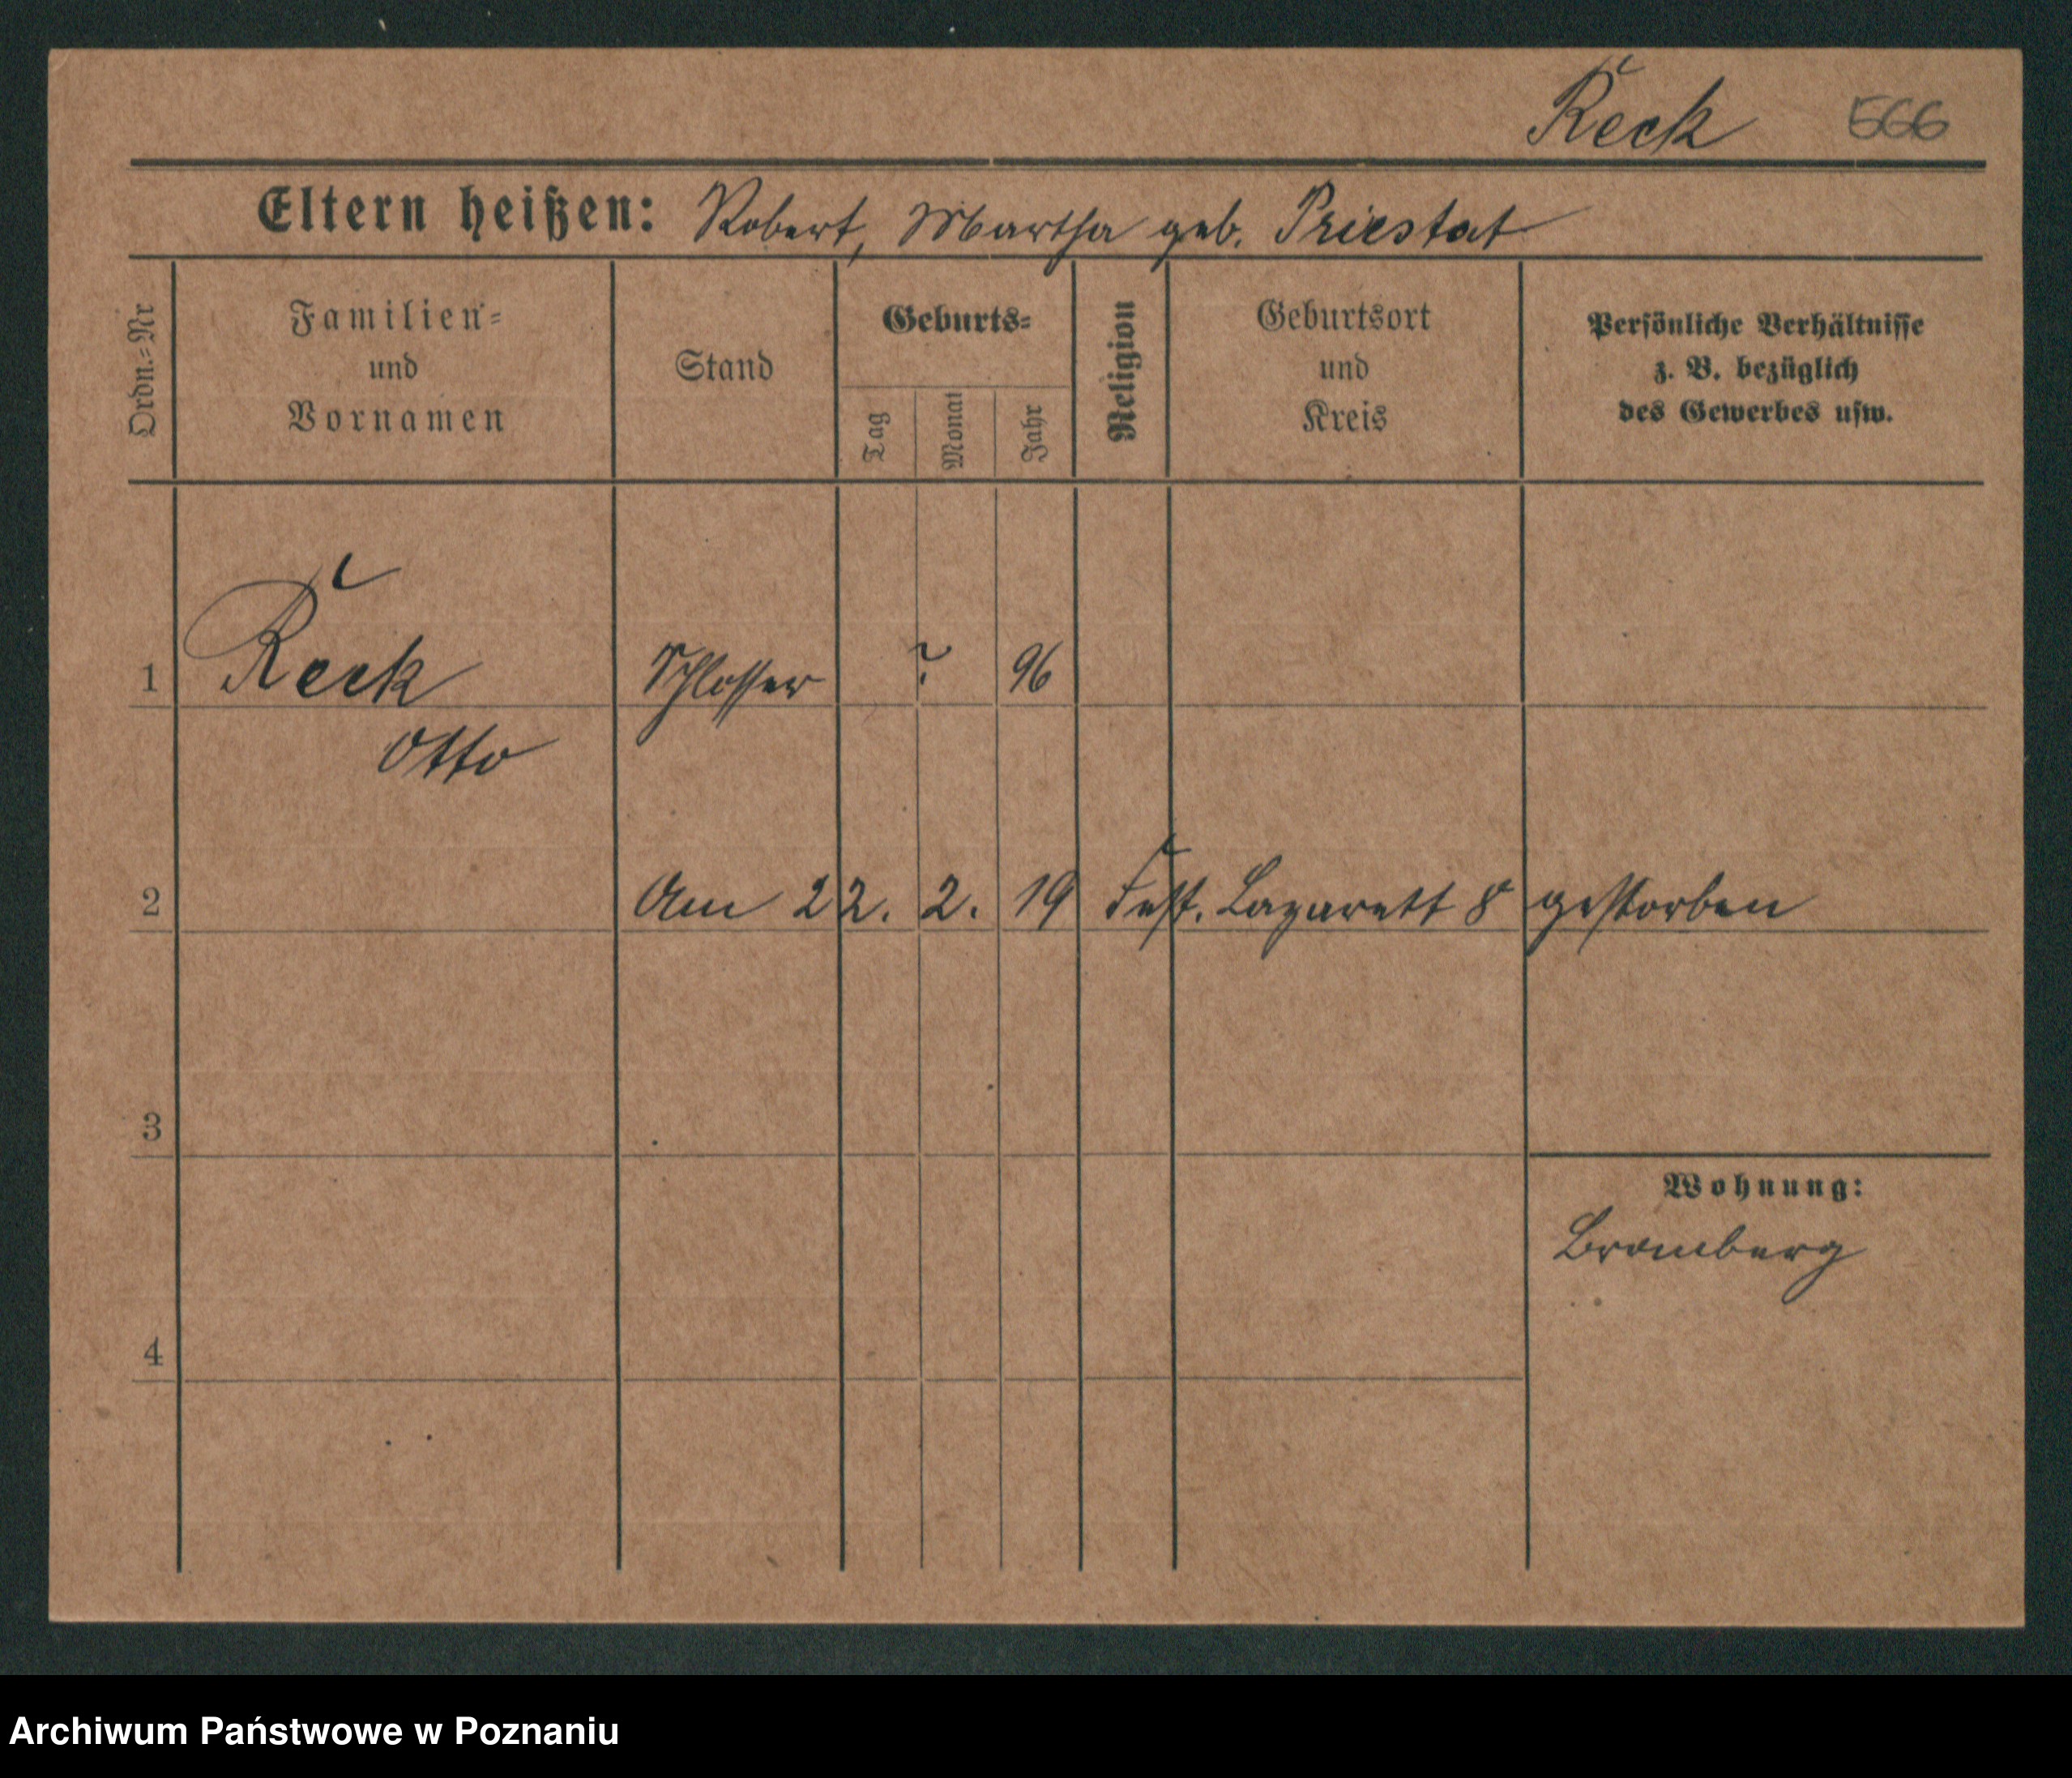 Reck 566
Eltern heißen: Robert, Martha geb. Priestat
Ordn.-Nr
Familien-
und
Vornamen
Stand
Geburts-
Tag
Monat
Jahr
Religion
Geburtsort
und
Kreis
Persönliche Verhältnisse
z. B. bezüglich
des Gewerbes usw.
1 Reck Schlosser ? 96
Otto
2 Am 22. 2. 19 Fest. Lazarett 8 gestorben
3
Wohnung:
Bromberg
4
Archiwum Państwowe w Poznaniu